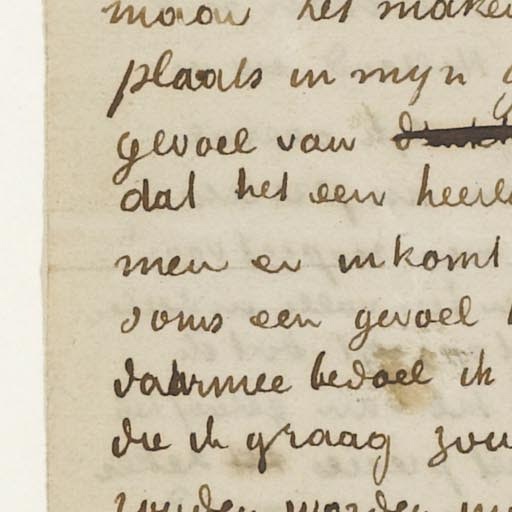 maar het maken
plaats in mijn
gevoel van
dat het een heerl
men er inkomt
soms een gevoel
daarmee bedoel ik
die ik graag zou
worden